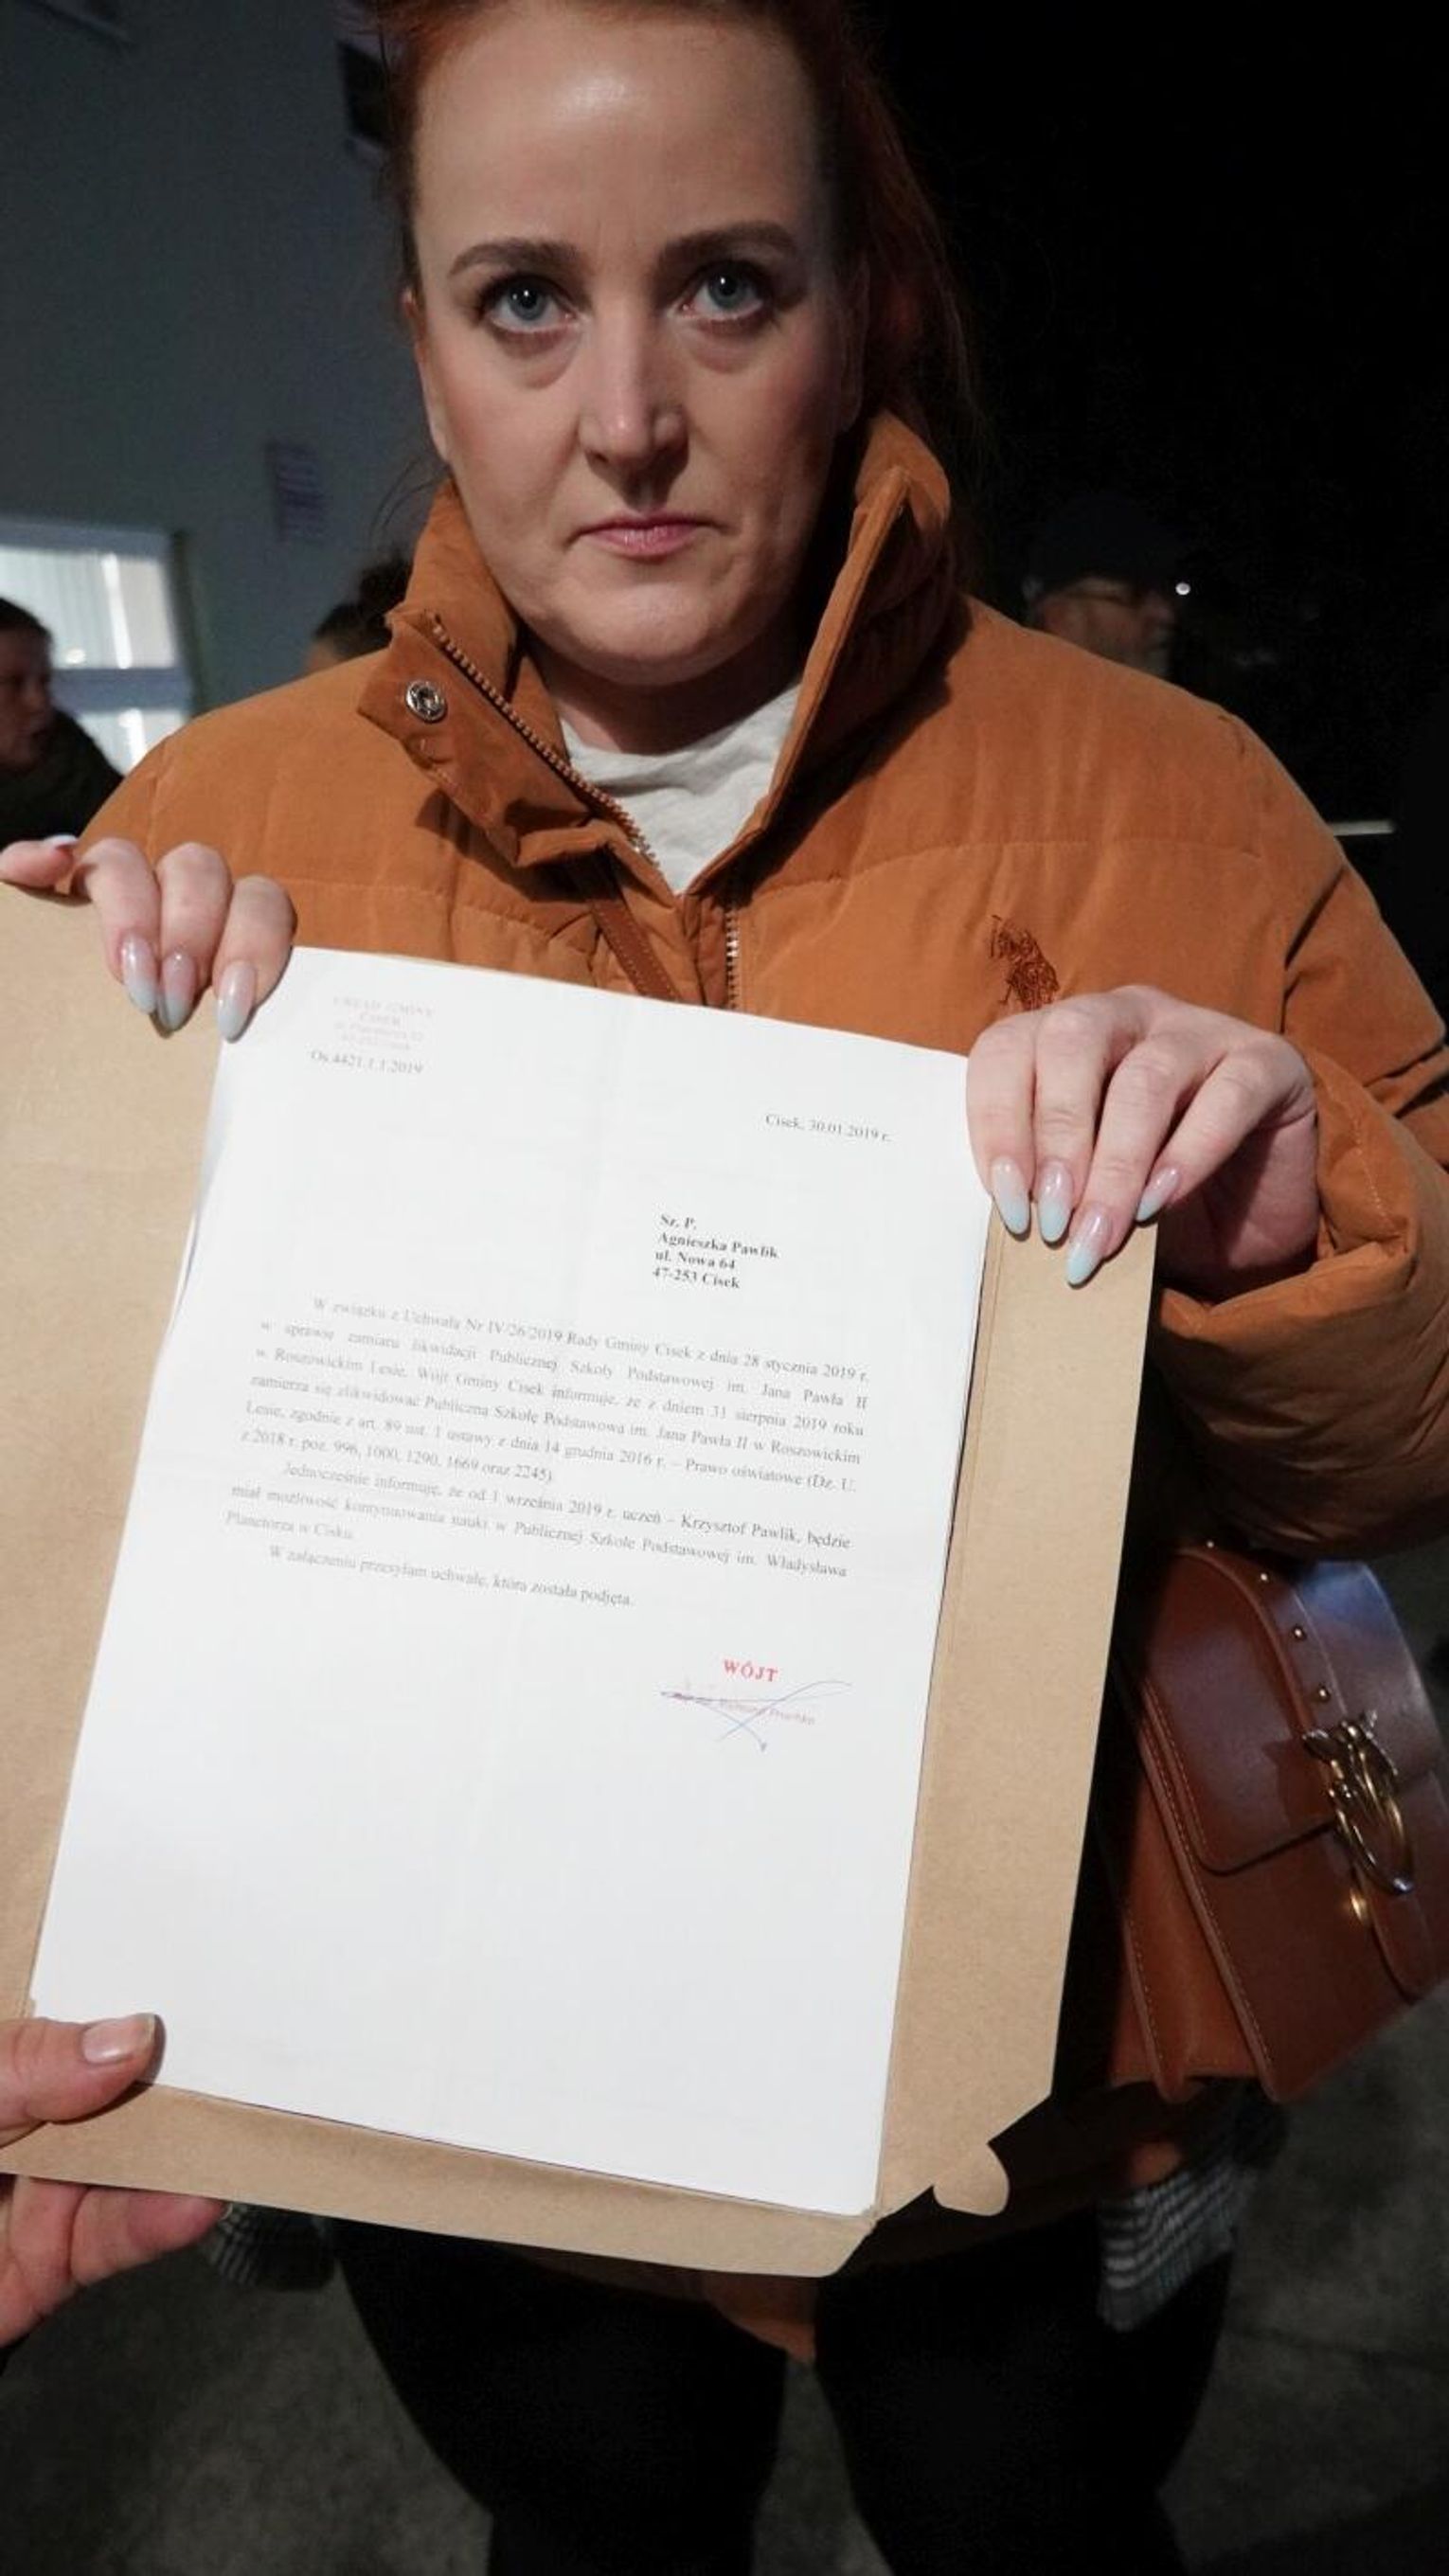 URZĄD GMINY
CISEK
Os.4421.1.1.2019
Cisek, 30.01.2019 r.
Sz. P.
Agnieszka Pawlik
ul. Nowa 64
47-253 Cisek
W związku z Uchwałą Nr IV/26/2019 Rady Gminy Cisek z dnia 28 stycznia 2019 r.
w sprawie zamiaru likwidacji Publicznej Szkoły Podstawowej im. Jana Pawła II
w Roszowickim Lesie, Wójt Gminy Cisek informuje, że z dniem 31 sierpnia 2019 roku
zamierza się zlikwidować Publiczną Szkołę Podstawową im. Jana Pawła II w Roszowickim
Lesie, zgodnie z art. 89 ust. 1 ustawy z dnia 14 grudnia 2016 r. – Prawo oświatowe (Dz. U.
z 2018 r. poz. 996, 1000, 1290, 1669 oraz 2245).
Jednocześnie informuję, że od 1 września 2019 r. uczeń – Krzysztof Pawlik, będzie
miał możliwość kontynuowania nauki w Publicznej Szkole Podstawowej im. Władysława
Planetorza w Cisku.
W załączeniu przesyłam uchwałę, która została podjęta.
WÓJT